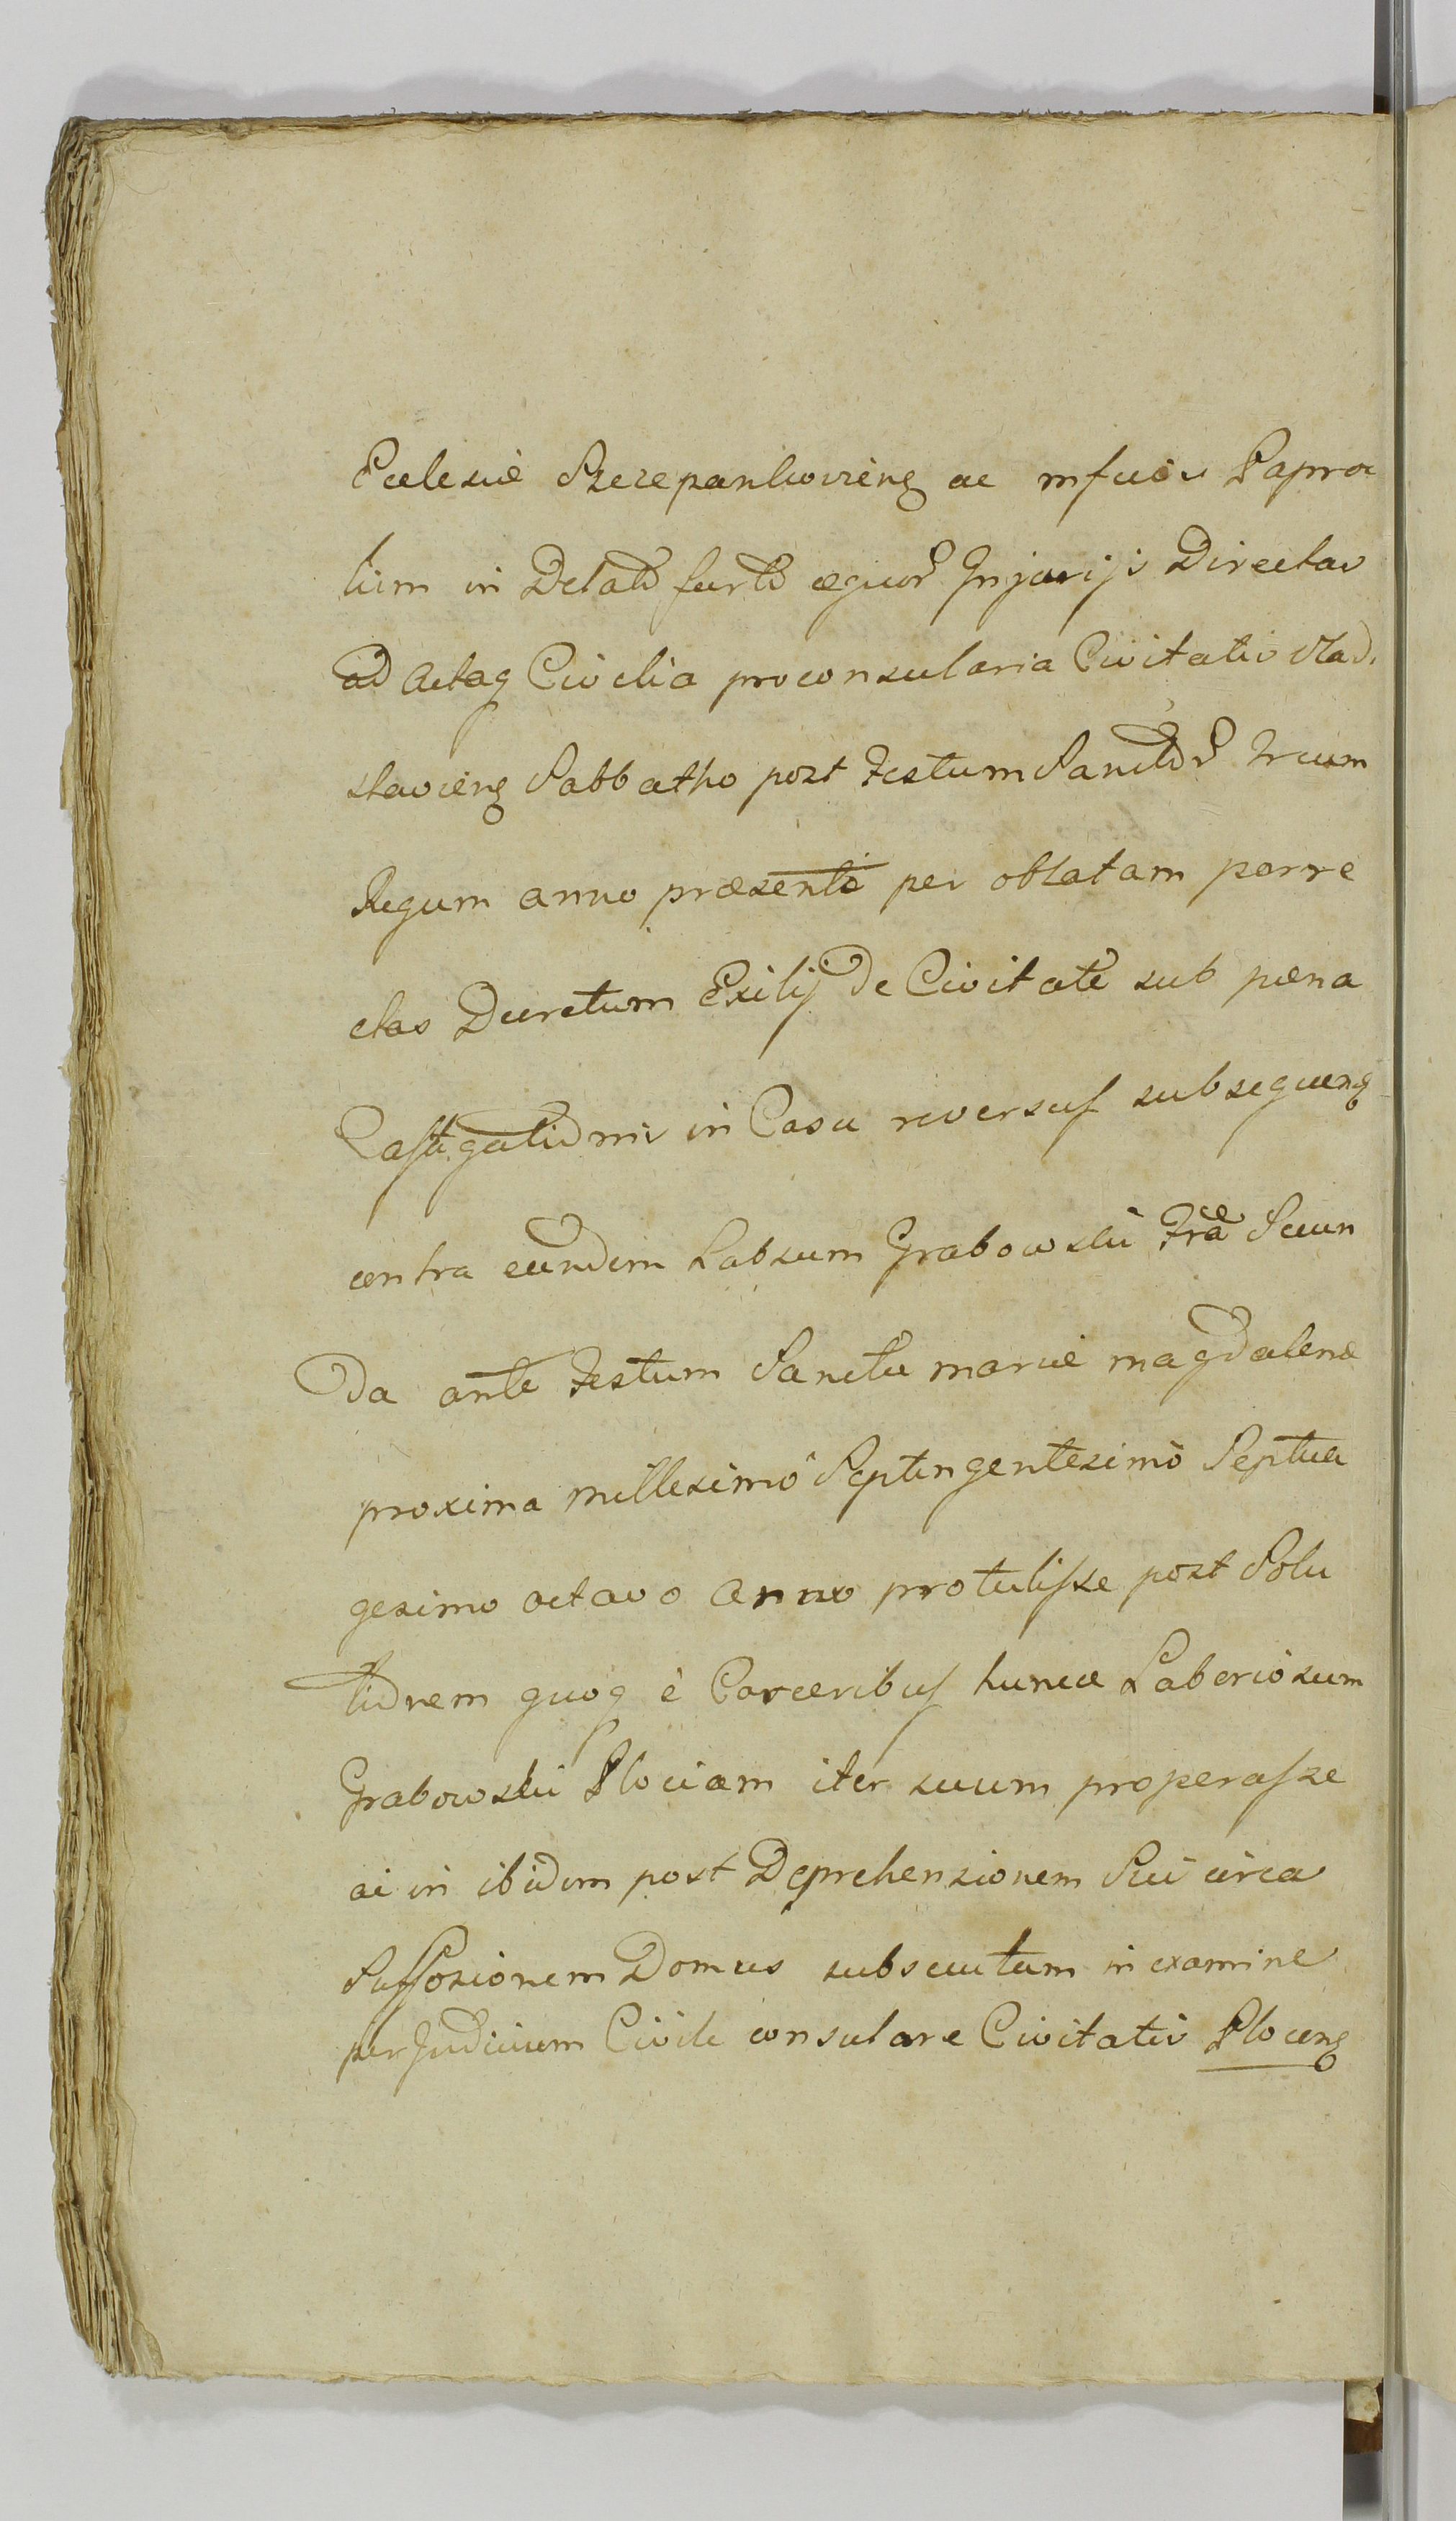 Ecclesiæ Szczepankovieng ac mfucis Papro
lium in Delatõ furtõ equorũ Injurijs Directas
ad Actaq Civilia proconsularia Civitatis Vlad.
slavieng Sabbatho post Festum Sanctorũ trium
Regum anno præsenti per oblatam porre
ctas Decretum Exilij de Civitate sub pæna
Castigationis in Casu reversus subsequeng
contra eundem Labsum Grabowski Fræ Secun
da ante Festum Sanctæ mariæ magdalenæ
proxima millesimo Septingentesimo Septua
gesimo octavo anno protulisse post Solu
tionem quoq è Carceribus hunce Laboriosum
Grabowski Plociam iter suum properasse
ac in ibidem post Deprehensionem Sui circa
Suffosionem Domus subsecutam in examine
per Judicium Civile consulare Civitatis Ploceng